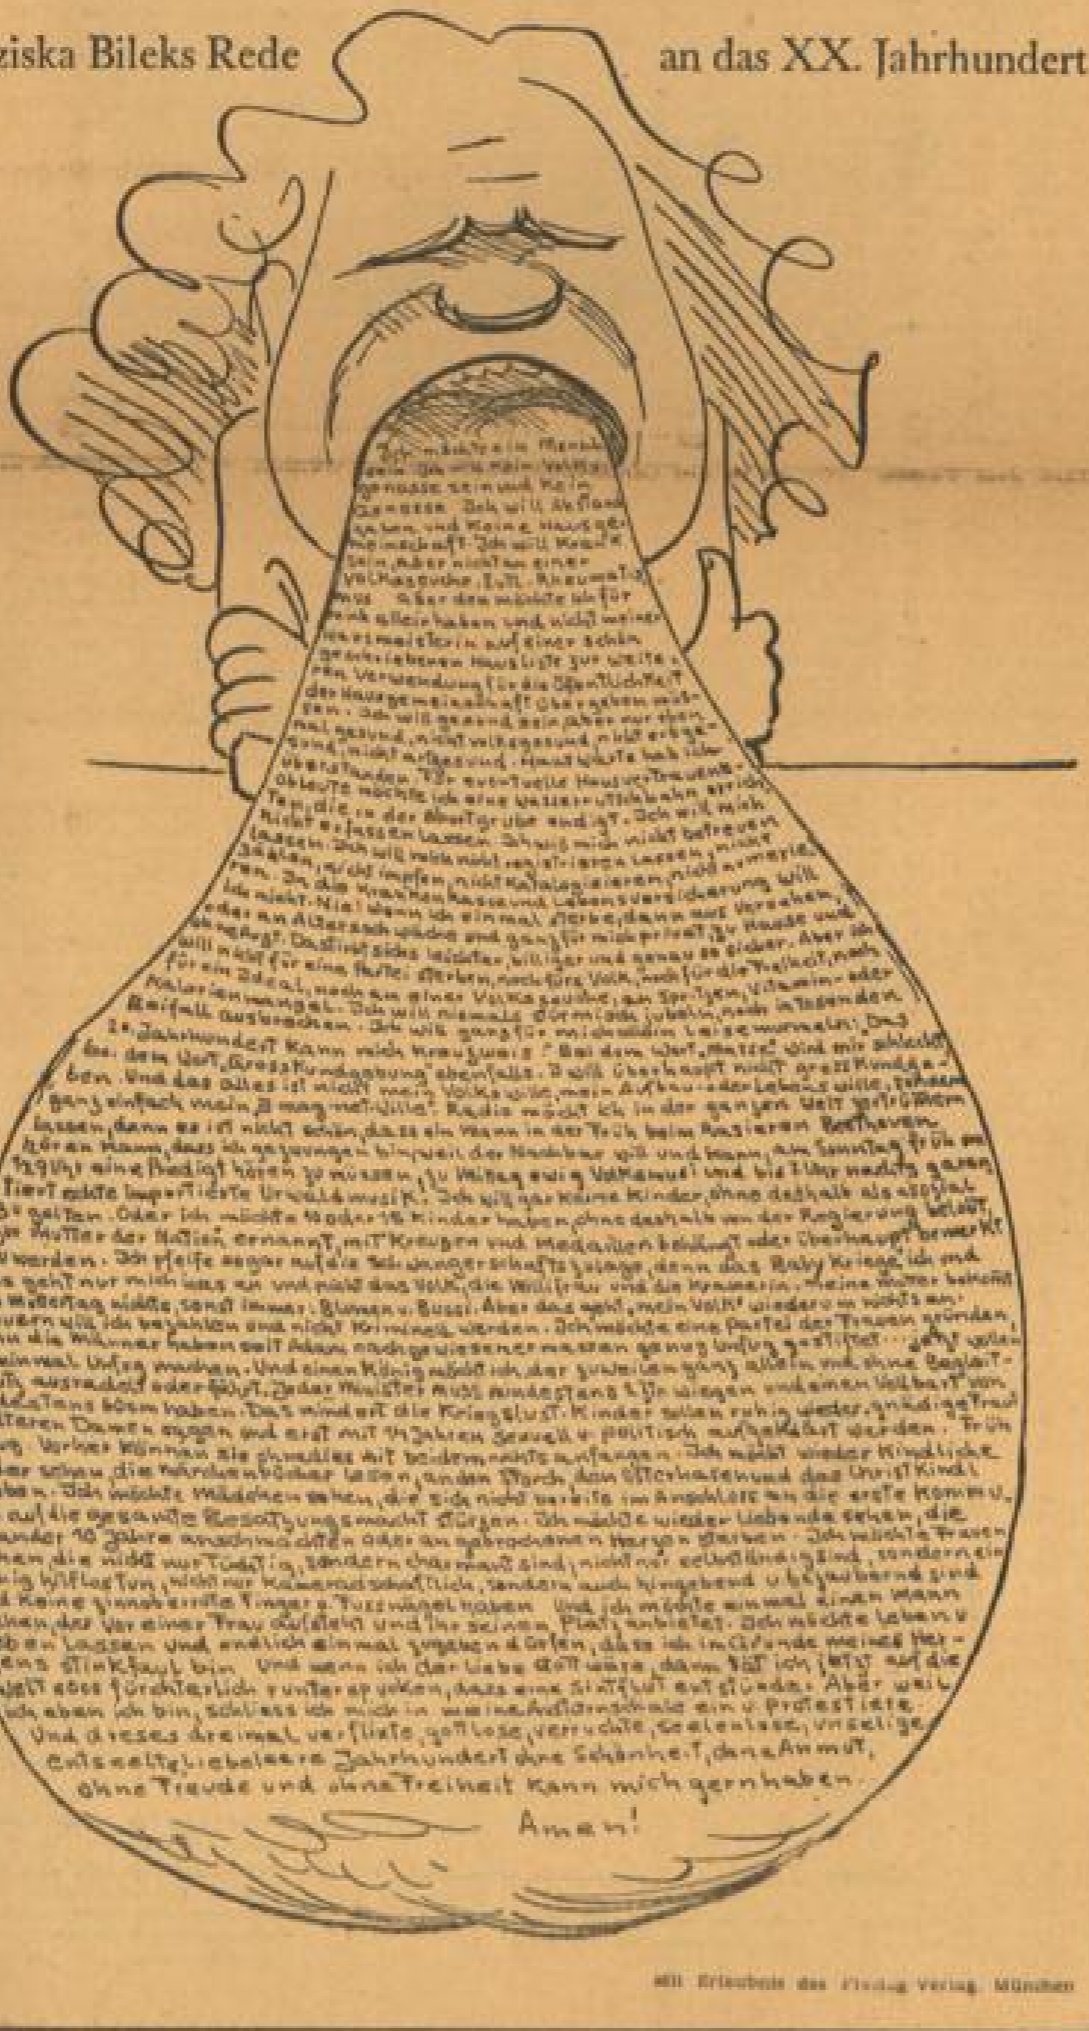 ziska Bileks Rede an das XX. Jahrhundert
Ich möchte ein Mensch
sein. Ich will kein Volks
genosse sein und kein
Genosse. Ich will Abstand
haben und keine Hausge-
meinschaft. Ich will krank
sein, aber nicht an einer
Volksseuche, z. B. Rheumatis
mus aber den möchte ich für
mich allein haben und nicht meiner
Hausmeisterin auf einer schön
geschriebenen Hausliste zur weite-
ren Verwendung für die Öffentlichkeit
der Hausgemeinschaft übergeben müs-
sen. Ich will gesund sein, aber nur eben
mal gesund, nicht volksgesund, nicht erbge-
sund, nicht artgesund. Hauswarte hab ich
überstanden. Für eventuelle Hausvertrauens-
obleute möchte ich eine Wasserrutschbahn errich
ten, die in der Abortgrube endigt. Ich will mich
nicht erfassen lassen. Ich will mich nicht betreuen
lassen. Ich will mich nicht registrieren lassen, nicht
zählen, nicht impfen, nicht katalogisieren, nicht numerie
ren. In die Krankenkasse und Lebensversicherung will
ich nicht. Nie! Wenn ich einmal sterbe, dann aus Versehen,
oder an Altersschwäche und ganz für mich privat, zu Hause und
ungezügt. Das stirbt sichs leichter, billiger und genau so sicher. Aber ich
will nicht für eine Partei sterben, noch fürs Volk, noch für die Freiheit, noch
für ein Ideal, noch an einer Volksseuche, an Spritzen, Vitamin- oder
Kalorienmangel. Ich will niemals stürmisch jubeln, noch in tosenden
Beifall ausbrechen. Ich will ganz für mich allein leise murmeln: "Das
20. Jahrhundert kann mich kreuzweis". Bei dem Wort "Masse" wird mir schlecht
bei dem Wort "Grosskundgebung" ebenfalls. I will überhaupt nicht gross kundge-
ben. Und das alles ist nicht mein Volkswille, mein Aufbau- oder Lebenswille, sondern
ganz einfach mein "I mag-net-Wille". Radio möcht ich in der ganzen Welt zertrümmern
lassen, denn es ist nicht schön, dass ein Mann in der Früh beim Rasieren Beethoven
hören kann, dass ich gezwungen bin, weil der Nachbar will und kann, am Sonntag früh um
Uhr eine Predigt hören zu müssen, zu Mittag ewig Volksmusi und bis 1 Uhr nachts garan
tiert echte importierte Urwaldmusik. Ich will gar keine Kinder, ohne deshalb als asozial
zu gelten. Oder ich möchte 10 oder 15 Kinder haben, ohne deshalb von der Regierung belobt,
zur Mutter der Nation ernannt, mit Kreuzen und Medaillen behängt oder überhaupt bemerkt
zu werden. Ich pfeife sogar auf die Schwangerschaftszulage, denn das Baby kriege ich und
s geht nur mich was an und nicht das Volk, die Milifrau und die Kramerin. Meine Mutter bekommt
Muttertag nichts, sonst immer: Blumen u. Bussi. Aber das geht "mein Volk" wiederum nichts an.
uern will ich bezahlen und nicht kriminell werden. Ich möchte eine Partei der Frauen gründen,
nn die Männer haben seit Adam nachgewiesenermassen genug Unfug gestiftet... jetzt wollen
einmal Unfug machen. Und einen König möcht ich der zuweilen ganz allein und ohne Begleit-
ausradelt oder fährt. Jeder Minister muss mindestens wiegen und einen Vollbart von
destens 60cm haben. Das mindert die Kriegslust. Kinder sollen ruhig wieder "gnädige Frau"
älteren Damen sagen und erst mit 14 Jahren sexuell u. politisch aufgeklärt werden. Früh
ug. Vorher können sie ohnedies mit beidem nichts anfangen. Ich möcht wieder kindliche
der schau, die Märchenbücher lesen, an den Storch, den Osterhasen und das Christkindl
uben. Ich möchte Mädchen sehen, die sich nicht bereits im Anschluss an die erste Kommu.
auf die gesamte Besatzungsmacht stürzen. Ich möchte wieder Liebende sehen, die
ander 10 Jahre anschmachten oder an gebrochenen Herzen sterben. Ich möchte Frauen
hen, die nicht nur tüchtig, sondern charmant sind, nicht nur selbständig sind, sondern ein
nig hilflos tun, nicht nur kameradschaftlich, sondern auch hingebend u. bezaubernd sind
d keine zinnoberrote Finger u. Fussnägel haben. Und ich möchte einmal einen Mann
hen, der vor einer Frau aufsteht und ihr seinen Platz anbietet. Ich möchte leben u
eben lassen und endlich einmal zugeben dürfen, dass ich im Grunde meines Her-
ens stinkfaul bin. Und wenn ich der liebe Gott wäre, dann tät ich jetzt auf die
Welt fürchterlich runterspucken, dass eine Sintflut entstünde. Aber weil
ich eben ich bin, schliess ich mich in meine Austernschale ein u. protestiere
Und dieses dreimal verflixte, gottlose, verruchte, seelenlose, unselige
entseelte, liebeleere Jahrhundert ohne Schönheit, ohne Anmut,
ohne Freude und ohne Freiheit kann mich gernhaben.
Amen!
Mit Erlaubnis des Verlag, München